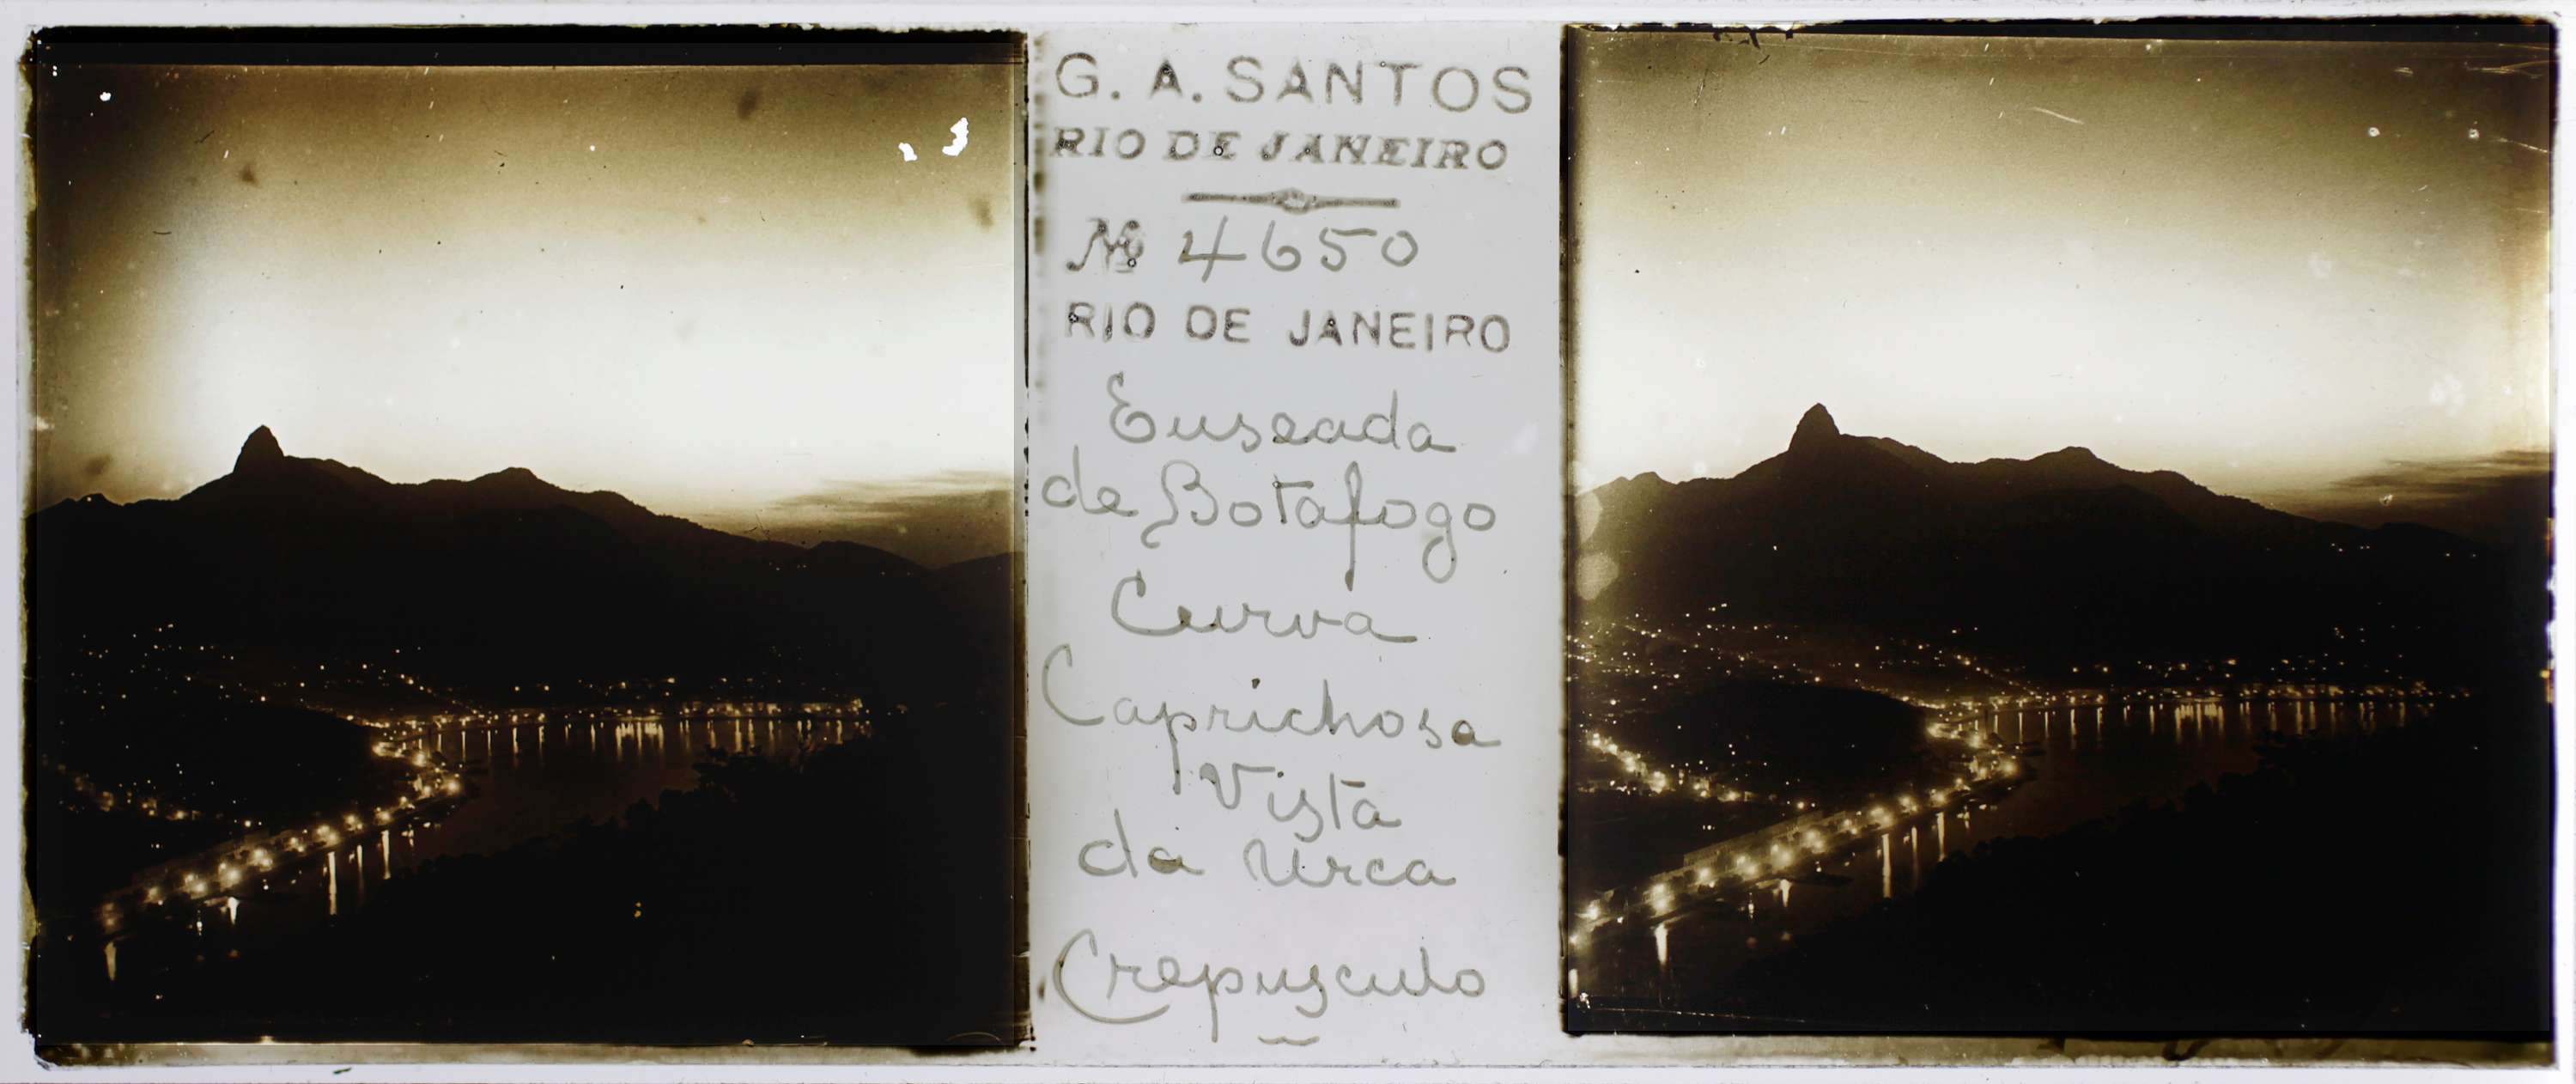 G. A. SANTOS
RIO DE JANEIRO
No 4650
RIO DE JANEIRO
Enseada
de Botafogo
Curva
Caprichosa
Vista
da Urca
Crepusculo